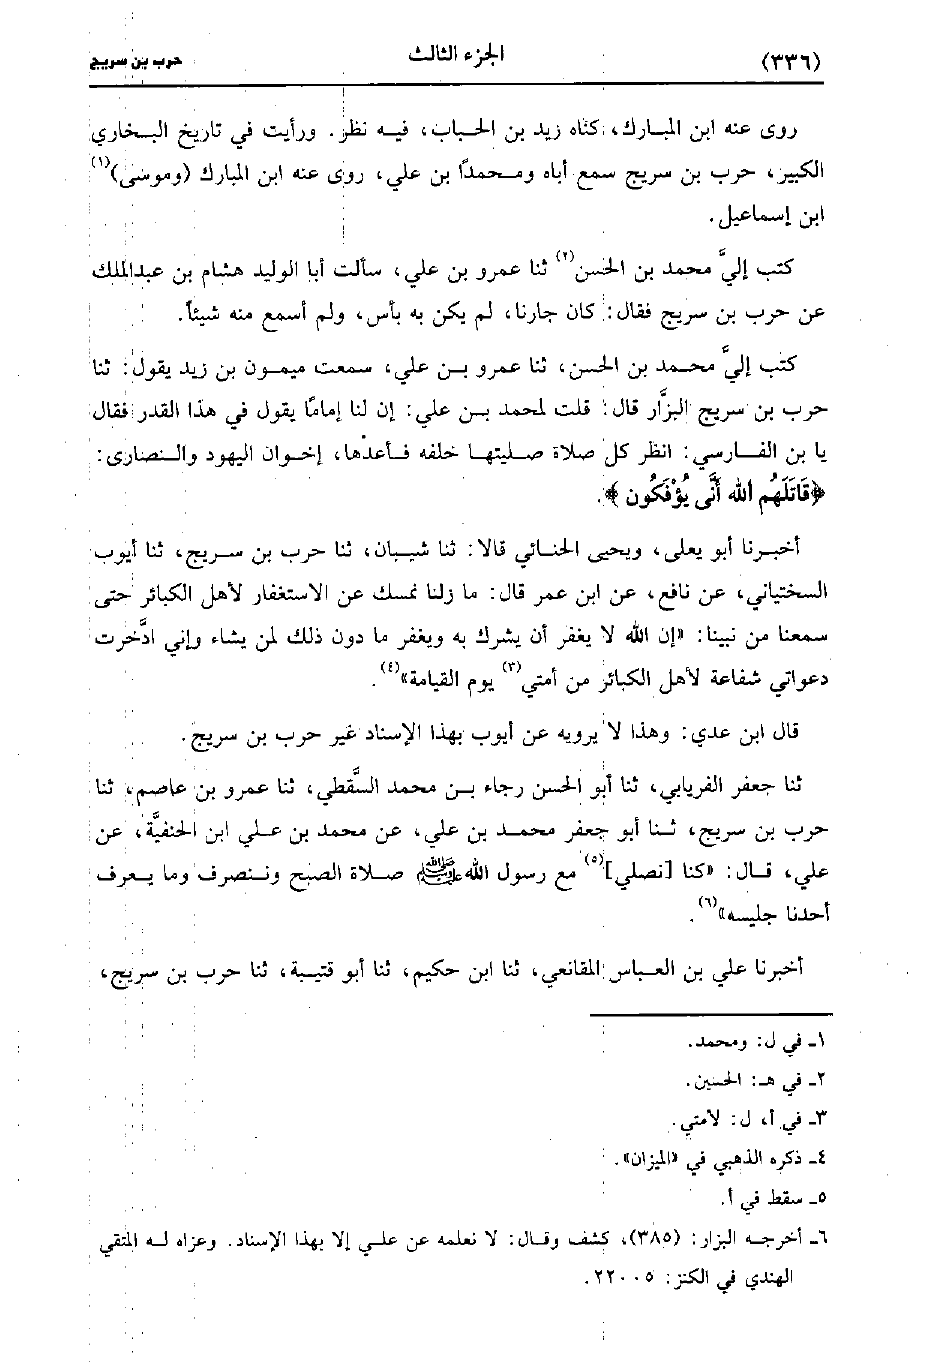 (٣٣٦) الجزء الثالث حرب بن سريج
روى عنه ابن المبارك، كناه زيد بن الحباب، فيه نظر. ورأيت في تاريخ البخاري
الكبير، حرب بن سريج سمع أباه ومحمداً بن علي، روى عنه ابن المبارك (وموسى)(١)
ابن إسماعيل.
كتب إليَّ محمد بن الحسن(٢) ثنا عمرو بن علي، سألت أبا الوليد هشام بن عبدالملك
عن حرب بن سريج فقال: كان جارنا، لم يكن به بأس، ولم أسمع منه شيئاً.
كتب إليَّ محمد بن الحسن، ثنا عمرو بن علي، سمعت ميمون بن زيد يقول: ثنا
حرب بن سريج البزَّار قال: قلت لمحمد بن علي: إن لنا إماماً يقول في هذا القدر فقال
يا بن الفارسي: انظر كل صلاة صليتها خلفه فأعدها، إخوان اليهود والنصارى:
﴿قَاتَلَهُم الله أَنَّى يُؤْفَكُون﴾.
أخبرنا أبو يعلى، ويحيى الحنائي قالا: ثنا شيبان، ثنا حرب بن سريج، ثنا أيوب
السختياني، عن نافع، عن ابن عمر قال: ما زلنا نمسك عن الاستغفار لأهل الكبائر حتى
سمعنا من نبينا: «إن الله لا يغفر أن يشرك به ويغفر ما دون ذلك لمن يشاء وإني ادَّخرت
دعواتي شفاعة لأهل الكبائر من أمتي(٣) يوم القيامة»(٤).
قال ابن عدي: وهذا لا يرويه عن أيوب بهذا الإسناد غير حرب بن سريج.
ثنا جعفر الفريابي، ثنا أبو الحسن رجاء بن محمد السَّقطي، ثنا عمرو بن عاصم، ثنا
حرب بن سريج، ثنا أبو جعفر محمد بن علي، عن محمد بن علي ابن الحنفيَّة، عن
علي، قال: «كنا [نصلي](٥) مع رسول الله ﷺ صلاة الصبح وننصرف وما يعرف
أحدنا جليسه»(٦).
أخبرنا علي بن العباس المقانعي، ثنا ابن حكيم، ثنا أبو قتيبة، ثنا حرب بن سريج،
١ـ في ل: ومحمد.
٢ـ في هـ: الحسين.
٣ـ في أ، ل: لأمتي.
٤ـ ذكره الذهبي في «الميزان».
٥ـ سقط في أ.
٦ـ أخرجه البزار: (٣٨٥)، كشف وقال: لا نعلمه عن علي إلا بهذا الإسناد. وعزاه له المتقي
الهندي في الكنز: ٢٢٠٠٥.